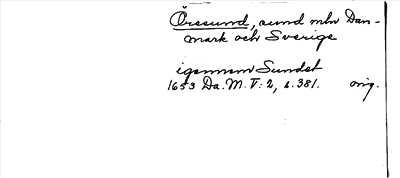 Öresund, sund mlm Dan-
mark och Sverige
igennem Sundet
1653 Da. M. V: 2, s. 381. orig.